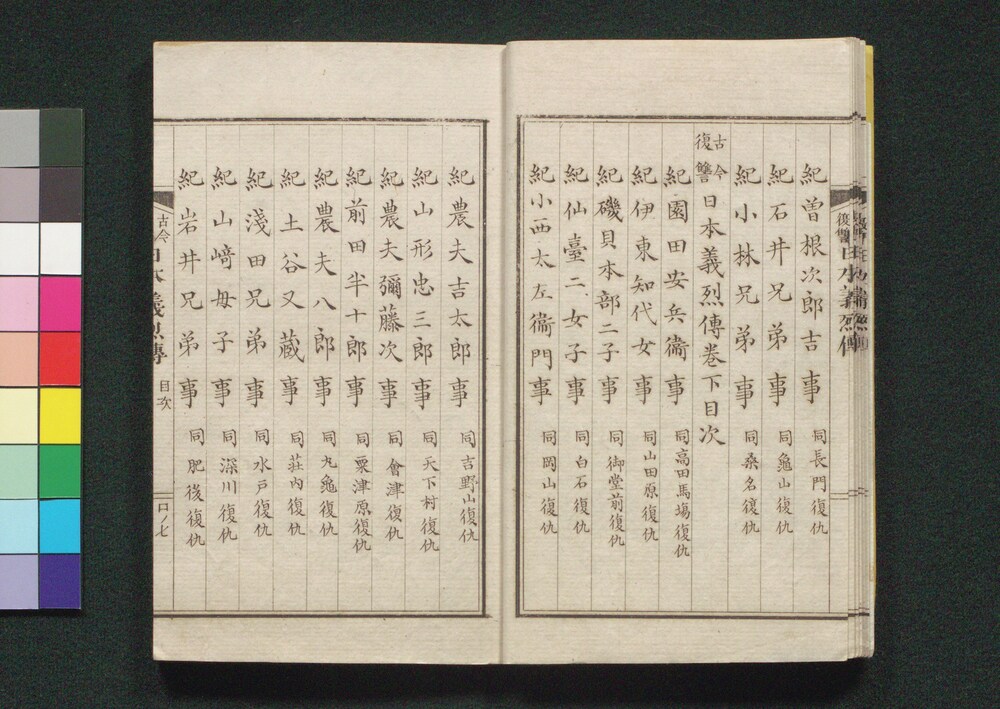 紀曽根次郎吉事 同長門復仇
紀石井兄弟事 同龜山復仇
紀小林兄弟事 同桑名復仇
古今復讐日本義烈傳卷下目次
紀園田安兵衞事 同高田馬場復仇
紀伊東知代女事 同山田原復仇
紀磯貝本部二子事 同御堂前復仇
紀仙臺二女子事 同白石復仇
紀小西太左衞門事 同岡山復仇
紀農夫吉太郎事 同吉野山復仇
紀山形忠三郎事 同天下村復仇
紀農夫彌藤次事 同會津復仇
紀前田半十郎事 同粟津原復仇
紀農夫八郎事 同丸龜復仇
紀土谷又藏事 同莊内復仇
紀淺田兄弟事 同水戸復仇
紀山﨑母子事 同深川復仇
紀岩井兄弟事 同肥後復仇
古今 日本義烈傳 目次 口ノ七
復讐 日本義烈傳